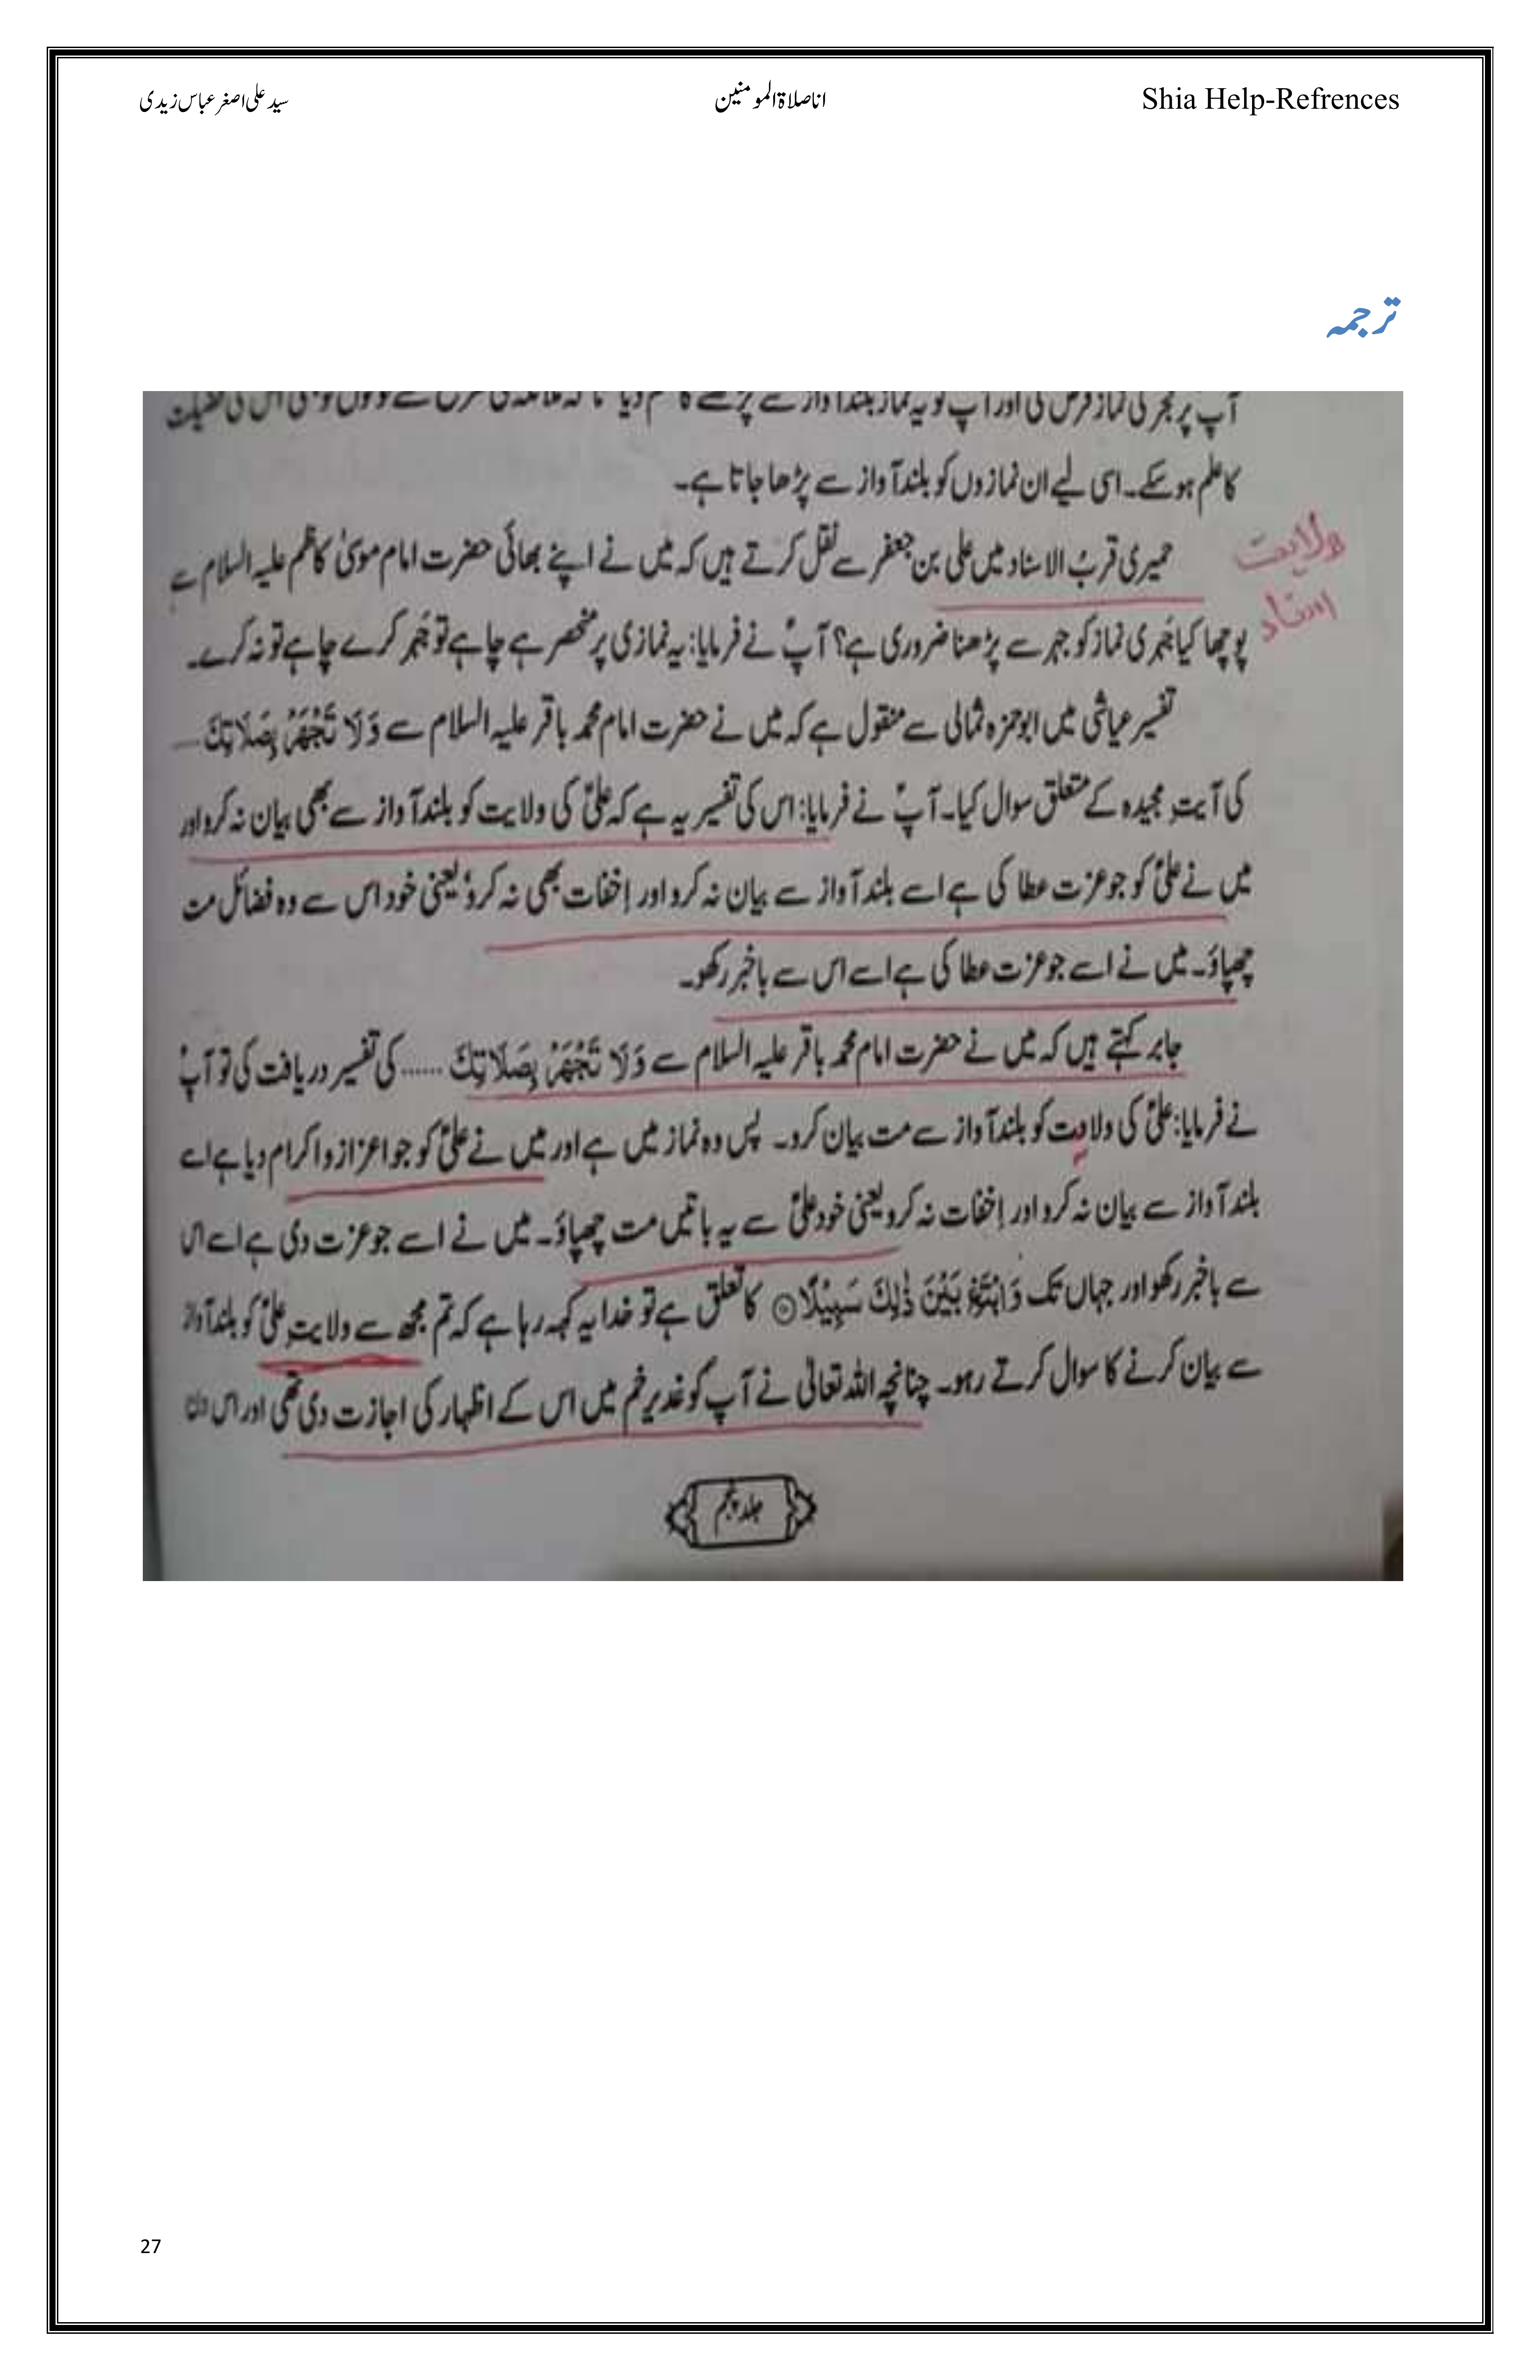 Shia Help-Refrences
اناصلاۃالمومنین
سید علی اصغر عباس زیدی
ترجمہ
آپ پر فجر کی نماز فرض کی اور آپ کو یہ نماز بلند آواز سے پڑھنے کا حکم دیا تا کہ
کا علم ہو سکے۔ اسی لیے ان نمازوں کو بلند آواز سے پڑھا جاتا ہے۔
ولایت
اسناد
حمیری قربُ الاسناد میں علی بن جعفر سے نقل کرتے ہیں کہ میں نے اپنے بھائی حضرت امام موسیٰ کاظم علیہ السلام سے
پوچھا کیا جَہری نماز کو جہر سے پڑھنا ضروری ہے؟ آپؑ نے فرمایا: یہ نمازی پر منحصر ہے چاہے تو جَہر کرے چاہے تو نہ کرے۔
تفسیر عیاشی میں ابوحمزہ ثمالی سے منقول ہے کہ میں نے حضرت امام محمد باقر علیہ السلام سے وَلَا تَجْهَرْ بِصَلَاتِكَ ....
کی آیتِ مجیدہ کے متعلق سوال کیا۔ آپؑ نے فرمایا: اس کی تفسیر یہ ہے کہ علیؑ کی ولایت کو بلند آواز سے بھی بیان نہ کرو اور
میں نے علیؑ کو جو عزت عطا کی ہے اسے بلند آواز سے بیان نہ کرو اور اِخفات بھی نہ کرو یعنی خود اس سے وہ فضائل مت
چھپاؤ۔ میں نے اسے جو عزت عطا کی ہے اسے اس سے باخبر رکھو۔
جابر کہتے ہیں کہ میں نے حضرت امام محمد باقر علیہ السلام سے وَلَا تَجْهَرْ بِصَلَاتِكَ ...... کی تفسیر دریافت کی تو آپؑ
نے فرمایا: علیؑ کی ولایت کو بلند آواز سے مت بیان کرو۔ پس وہ نماز میں ہے اور میں نے علیؑ کو جو اعزاز و اکرام دیا ہے اسے
بلند آواز سے بیان نہ کرو اور اِخفات نہ کرو یعنی خود علیؑ سے یہ باتیں مت چھپاؤ۔ میں نے اسے جو عزت دی ہے اسے اس
سے باخبر رکھو اور جہاں تک وَابْتَغِ بَيْنَ ذٰلِكَ سَبِيْلًا۝ کا تعلق ہے تو خدا یہ کہہ رہا ہے کہ تم مجھ سے ولایتِ علیؑ کو بلند آواز
سے بیان کرنے کا سوال کرتے رہو۔ چنانچہ اللہ تعالیٰ نے آپ کو غدیرِ خم میں اس کے اظہار کی اجازت دی تھی اور اس دن
جلد پنجم
27